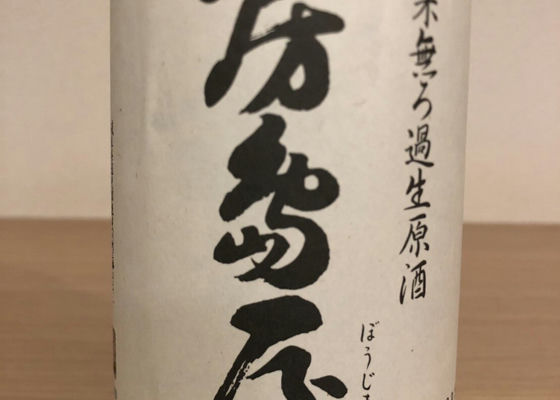 米無ろ過生原酒
房島屋
ぼうじま